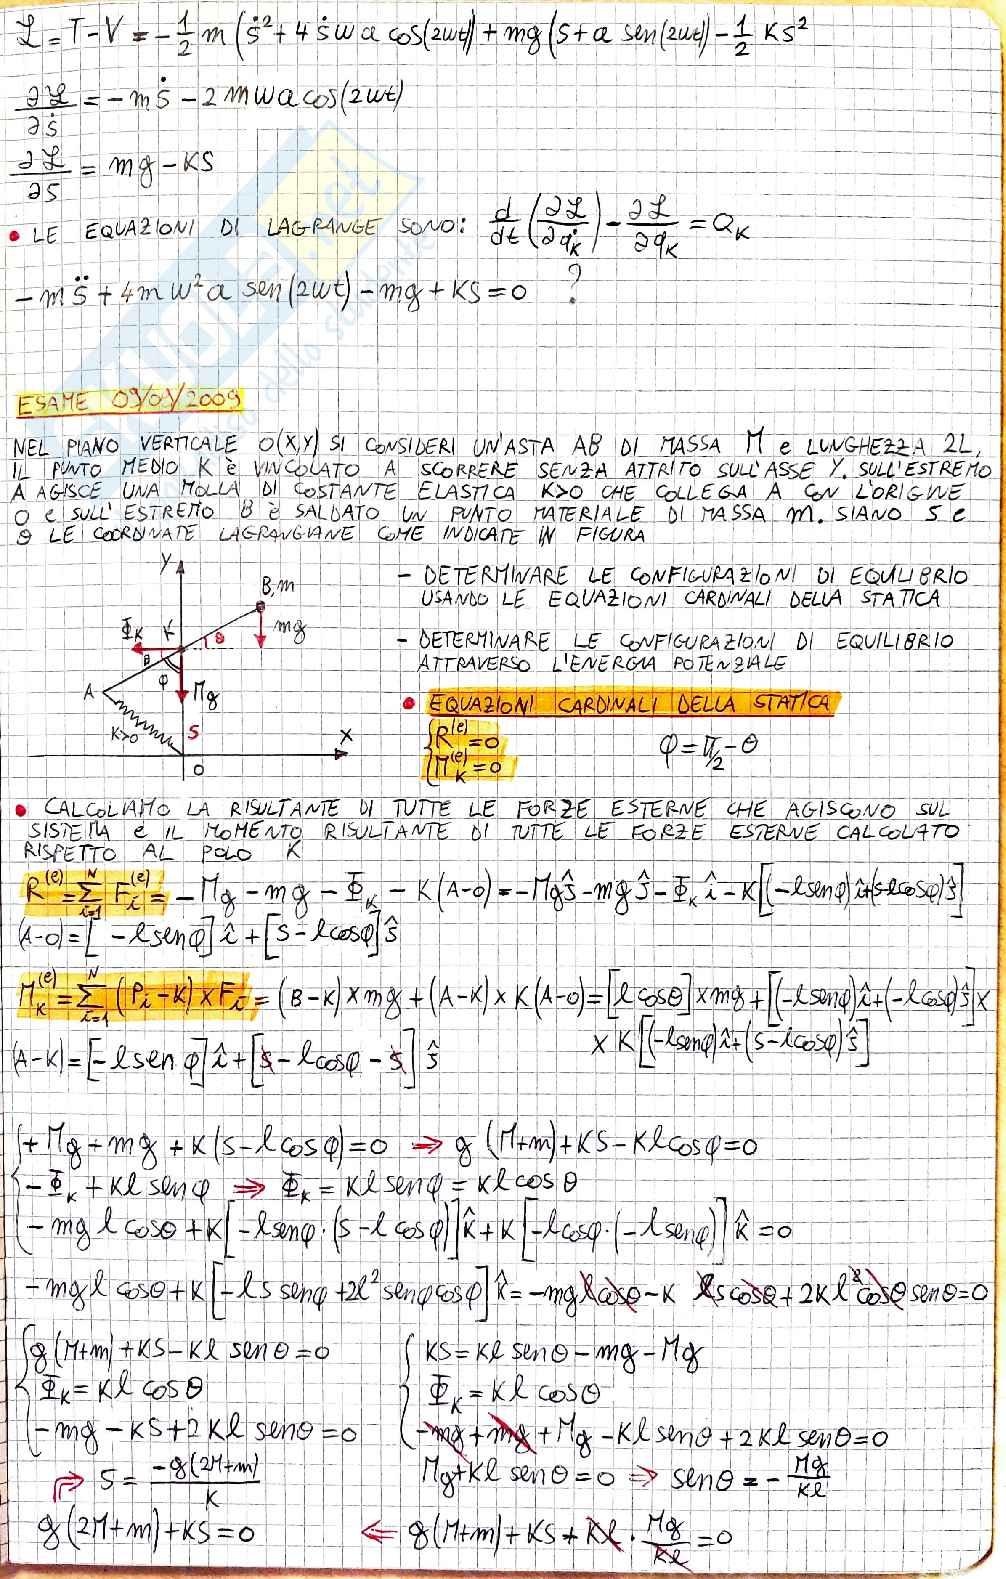 ℒ = T-V = -1/2 m(ṡ² + 4ṡwa cos(2wt)) + mg(s + a sen(2wt) - 1/2 Ks²
∂ℒ/∂ṡ = -mṡ - 2mwa cos(2wt)
∂ℒ/∂s = mg - KS
• LE EQUAZIONI DI LAGRANGE SONO: d/dt (∂ℒ/∂q̇K) - ∂ℒ/∂qK = QK
-ms̈ + 4mw²a sen(2wt) - mg + KS = 0 ?
ESAME 09/09/2009
NEL PIANO VERTICALE O(X,Y) SI CONSIDERI UN'ASTA AB DI MASSA M e LUNGHEZZA 2L,
IL PUNTO MEDIO K è VINCOLATO A SCORRERE SENZA ATTRITO SULL'ASSE Y. SULL'ESTREMO
A AGISCE UNA MOLLA DI COSTANTE ELASTICA K>0 CHE COLLEGA A CON L'ORIGINE
O e SULL'ESTREMO B è SALDATO UN PUNTO MATERIALE DI MASSA m. SIANO S e
θ LE COORDINATE LAGRANGIANE COME INDICATE IN FIGURA
Y
B,m
ΦK
K
θ
mg
θ
φ
A
Mg
K>0
S
X
O
- DETERMINARE LE CONFIGURAZIONI DI EQUILIBRIO
USANDO LE EQUAZIONI CARDINALI DELLA STATICA
- DETERMINARE LE CONFIGURAZIONI DI EQUILIBRIO
ATTRAVERSO L'ENERGIA POTENZIALE
• EQUAZIONI CARDINALI DELLA STATICA
{R^(e) = 0
{M_K^(e) = 0
φ = π/2 - θ
• CALCOLIAMO LA RISULTANTE DI TUTTE LE FORZE ESTERNE CHE AGISCONO SUL
SISTEMA e IL MOMENTO RISULTANTE DI TUTTE LE FORZE ESTERNE CALCOLATO
RISPETTO AL POLO K
R^(e) = Σ_{i=1}^N F_i^(e) = -Mg - mg - ΦK - K(A-O) = -Mgĵ - mgĵ - ΦK î - K[(-lsenφ)î + (s-lcosφ)ĵ]
(A-O) = [-lsenφ]î + [s-lcosφ]ĵ
M_K^(e) = Σ_{i=1}^N (Pi-K) × Fi = (B-K) × mg + (A-K) × K(A-O) = [l cosθ] × mg + [(-lsenφ)î + (-lcosφ)ĵ] ×
× K[(-lsenφ)î + (s-lcosφ)ĵ]
(A-K) = [-lsenφ]î + [s - lcosφ - s]ĵ
{+Mg + mg + K(s-lcosφ) = 0 ⇒ g(M+m) + KS - Klcosφ = 0
{-ΦK + Klsenφ ⇒ ΦK = Klsenφ = Klcosθ
{-mg l cosθ + K[-lsenφ·(s-lcosφ)]k̂ + K[-lcosφ·(-lsenφ)]k̂ = 0
-mgl cosθ + K[-ls senφ + 2l²senφcosφ]k̂ = -mglcosθ - K lscosθ + 2Kl²cosθsenθ = 0
{g(M+m) + KS - Kl senθ = 0
{ΦK = Kl cosθ
{-mg - KS + 2Kl senθ = 0
{KS = Kl senθ - mg - Mg
{ΦK = Kl cosθ
{-mg + mg + Mg - Klsenθ + 2Kl senθ = 0
⇒ S = -g(2M+m)/K
Mg + Kl senθ = 0 ⇒ senθ = -Mg/Kl
g(2M+m) + KS = 0 ⇐ g(M+m) + KS + Kl · Mg/Kl = 0